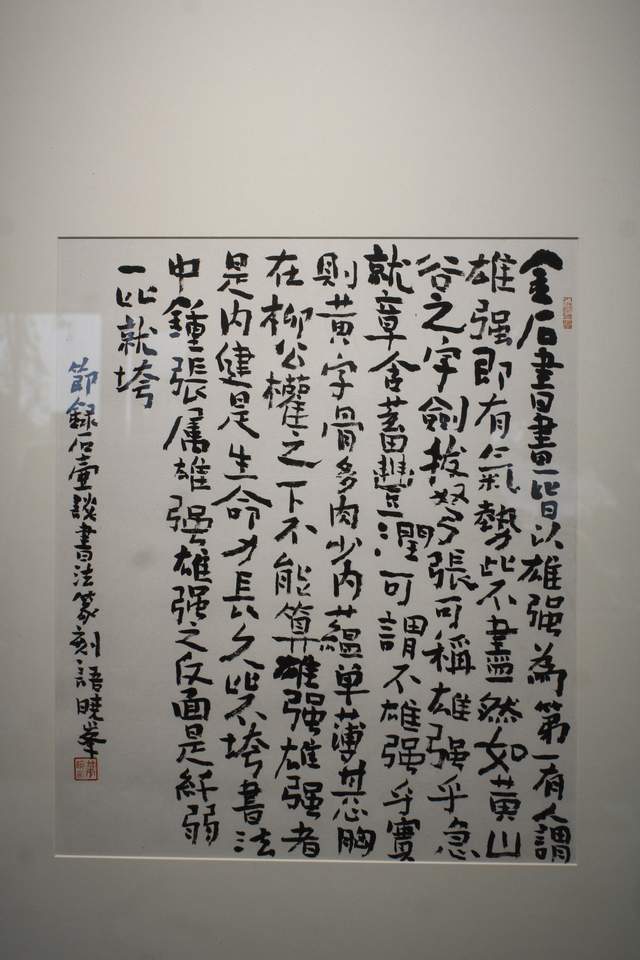 金石書畫皆以雄强為第一有人謂
雄强即有氣勢此不盡然如黄山
谷之字劍拔弩張可稱雄强乎急
就章含蓄豐潤可謂不雄强乎實
則黄字骨多肉少内蘊单薄其胸
在柳公權之下不能算雄强雄强者
是内健是生命力長久些不垮書法
中鍾張属雄强雄强之反面是纤弱
一比就垮
節録石壺談書法篆刻語曉峯